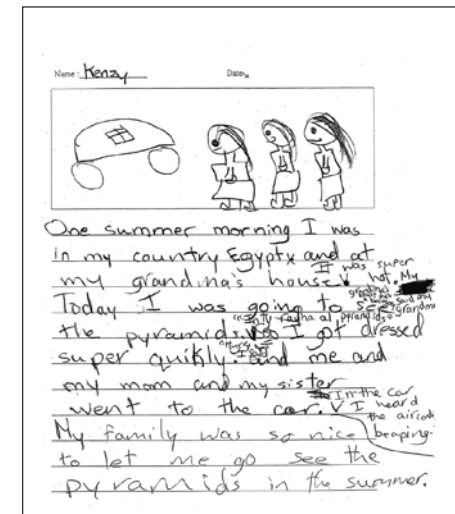 Name: Kenzy Date:
One summer morning I was
in my country Egyptx and at
my grandma's house. It was super hot. My
Today I was going to see
the pyramids. so I got dressed
super quikly. and me and
my mom and my sister
went to the car. In the car I heard the aircon beaping.
My family was so nice
to let me go see the
pyramids in the summer.